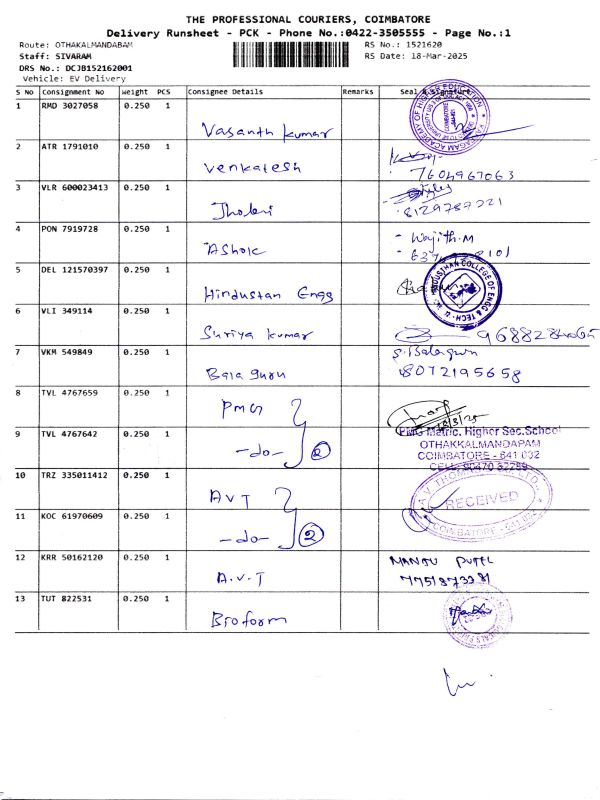 THE PROFESSIONAL COURIERS, COIMBATORE
Delivery Runsheet - PCK - Phone No.:0422-3505555 - Page No.:1
Route: OTHAKALMANDABAM RS No.: 1521620
Staff: SIVARAM RS Date: 18-Mar-2025
DRS No.: DCJB152162001
Vehicle: EV Delivery
S No Consignment No Weight PCS Consignee Details Remarks Seal & Signature
1 RMD 3027058 0.250 1
Vasanth kumar
2 ATR 1791010 0.250 1
Venkatesh 7604967063
3 VLR 600023413 0.250 1
8129787221
4 PON 7919728 0.250 1
Ashok - Wajith.M
5 DEL 121570397 0.250 1
Hindustan Engg
6 VLI 349114 0.250 1
Suriya kumar
7 VKM 549849 0.250 1
Bala guru 8072195658
8 TVL 4767659 0.250 1
PMG
18/3/25
9 TVL 4767642 0.250 1 PMG Matric. Higher Sec.School
OTHAKKALMANDAPAM
-do- 2 COIMBATORE - 641 032
10 TRZ 335011412 0.250 1
AVT RECEIVED
11 KOC 61970609 0.250 1
-do- 2
12 KRR 50162120 0.250 1 MANJU PATEL
A.V.T
13 TUT 822531 0.250 1
Bioform